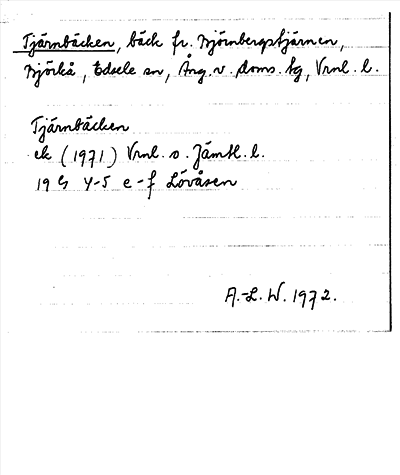 Tjärnbäcken, bäck fr. Björnbergstjärnen,
Björkå, Edsele sn, Ång. v. doms. tg, Vrnl. l.
Tjärnbäcken
ek (1971) Vrnl. o. Jämtl. l.
19 G 4-5 e-f Lövåsen
A.-L. W. 1972.